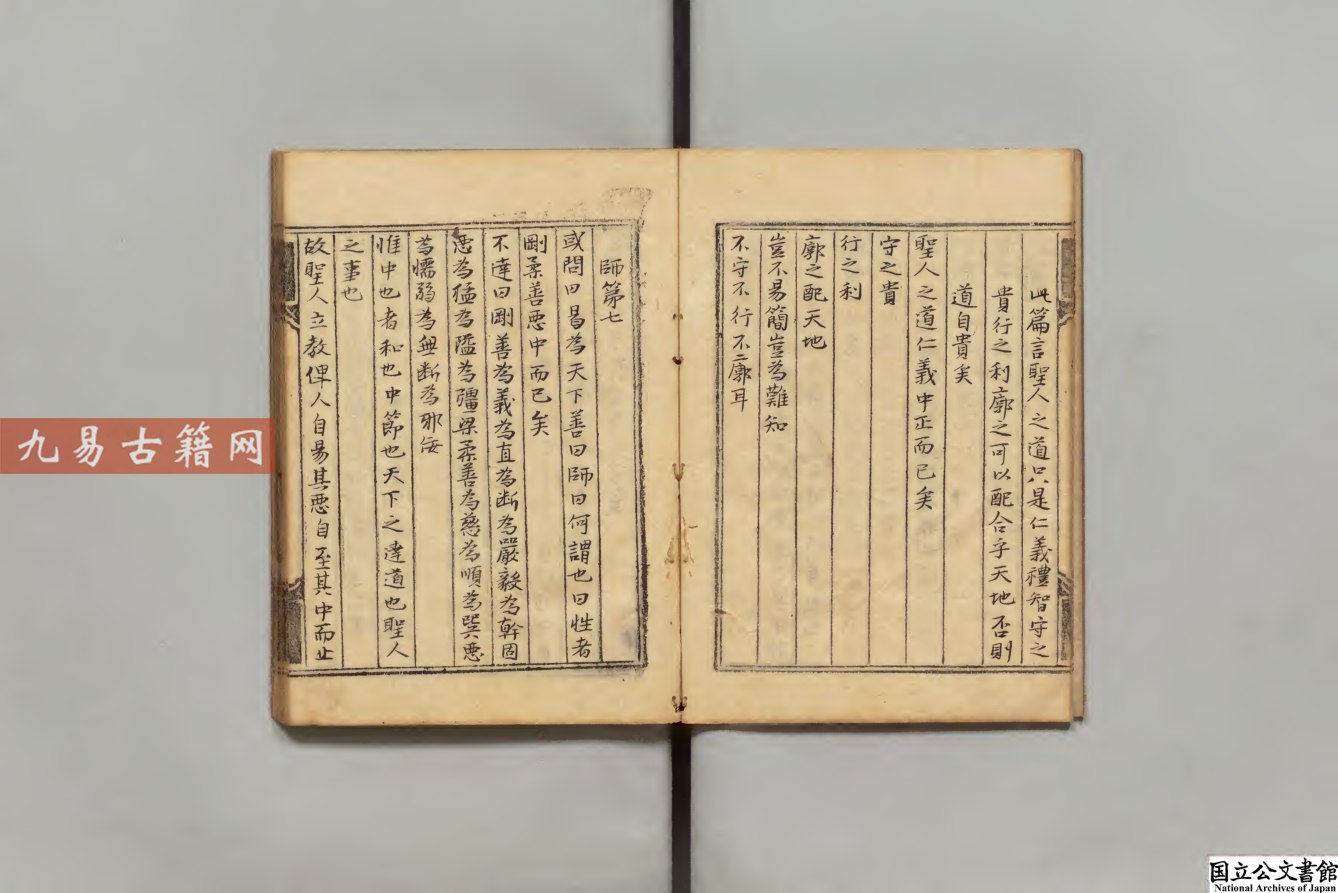 此篇言聖人之道只是仁義禮智守之
貴行之利廓之可以配合乎天地否則
道自貴矣
聖人之道仁義中正而已矣
守之貴
行之利
廓之配天地
豈不易簡豈為難知
不守不行不廓耳
師第七
或問曰曷為天下善曰師曰何謂也曰性者
剛柔善悪中而已矣
不達曰剛善為義為直為断為嚴毅為幹固
悪為猛為隘為彊梁柔善為慈為順為巽悪
為懦弱為無断為邪佞
惟中也者和也中節也天下之達道也聖人
之事也
故聖人立教俾人自易其悪自至其中而止
九易古籍网
国立公文書館
National Archives of Japan